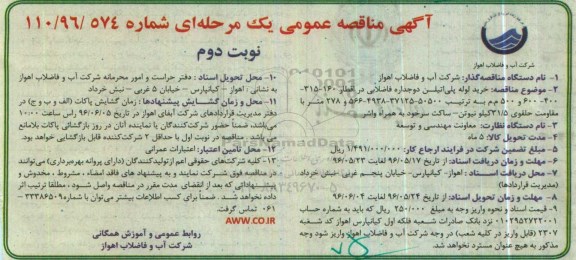 آگهی مناقصه عمومی یک مرحله‌ای شماره ۵۷۴ /۱۱۰/۹۶
نوبت دوم
شرکت آب و فاضلاب اهواز
۱- نام دستگاه مناقصه‌گذار: شرکت آب و فاضلاب اهواز
۲- موضوع مناقصه: خرید لوله پلی‌اتیلن دوجداره فاضلابی در اقطار ۱۶۰-۳۱۵-
۴۰۰-۶۰۰ و ۵۰۰ م م به ترتیب ۵۰۵۰۰-۳۷۱۲۵-۴۹۳۸-۵۶۶ و ۲۷۸ متر با
مقاومت حلقوی ۳۱/۵ کیلو نیوتن- ساکت سرخود به همراه واشر
۳- نام دستگاه نظارت: معاونت مهندسی و توسعه
۴- مدت تحویل کالا: ۵ ماه
۵- مبلغ تضمین شرکت در فرآیند ارجاع کار: ۱/۴۹۱/۰۰۰/۰۰۰ ریال
۶- مهلت و زمان دریافت اسناد: از تاریخ ۹۶/۰۵/۱۷ لغایت ۹۶/۰۵/۲۳
۷- محل دریافت اسناد: اهواز- کیانپارس- خیابان پنجم غربی- نبش خرداد
(مدیریت قراردادها)
۸- مهلت و زمان تحویل اسناد: از تاریخ ۹۶/۰۵/۲۴ لغایت ۹۶/۰۶/۰۴
۹- قیمت اسناد و نحوه واریز وجه به مبلغ ۲۵۰/۰۰۰ ریال که باید به شماره حساب
۰۱۰۲۹۵۲۷۲۲۰۰۱ نزد بانک صادرات شعبه فلکه اول کیانپارس اهواز کد شعبه
۲۳۰۷ (قابل واریز در کلیه شعب) در وجه شرکت آب و فاضلاب اهواز واریز شود وجه
مذکور به هیچ عنوان مسترد نخواهد شد.
۱۰- محل تحویل اسناد: دفتر حراست و امور محرمانه شرکت آب و فاضلاب اهواز
به نشانی: اهواز- کیانپارس- خیابان ۵ غربی- نبش خرداد
۱۱- محل و زمان گشایش پیشنهادها: زمان گشایش پاکات (الف و ب و ج) در
دفتر مدیریت قراردادهای شرکت آبفای اهواز در تاریخ ۹۶/۰۶/۰۵ راس ساعت ۱۰:۰۰
می‌باشد، ضمنا حضور شرکت‌کنندگان یا نماینده آنان در روز بازگشایی پاکات بلامانع
می‌باشد. مناقصه در نوبت اول با حداقل ۲ شرکت‌کننده قابل بازگشایی خواهد بود.
۱۲- محل تأمین اعتبار: اعتبارات عمرانی
۱۳- کلیه شرکت‌های حقوقی اعم از تولیدکنندگان (دارای پروانه بهره‌برداری) می‌توانند
در مناقصه فوق شرکت نمایند و به پیشنهاد های فاقد امضاء، مشروط، مخدوش و
پیشنهاداتی که بعد از انقضای مدت مقرر در مناقصه واصل شود، مطلقا ترتیب اثر
داده نخواهد شد. ضمناً برای کسب اطلاعات بیشتر می‌توان با شماره ۳۳۳۸۶۵۰۹-
۰۶۱ تماس گرفت.
AWW.CO.IR
روابط عمومی و آموزش همگانی
شرکت آب و فاضلاب اهواز